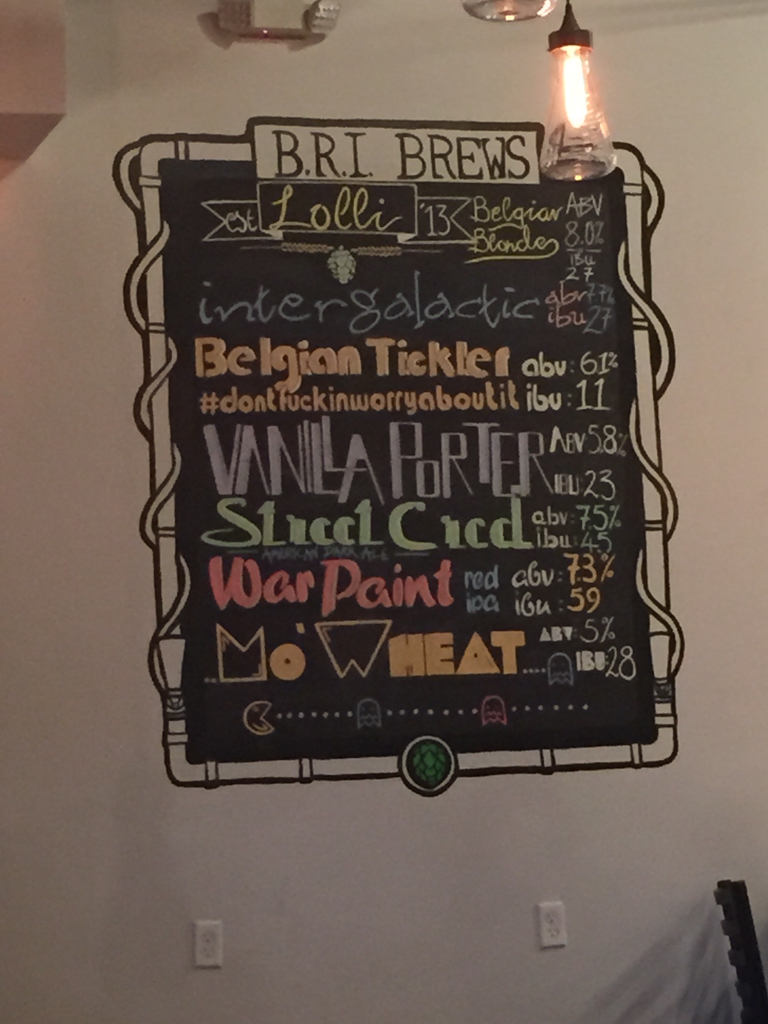 B.R.I. BREWS
est Lolli '13 Belgian Blonde ABV 8.0% IBU 27
intergalactic abv 7.7% ibu 27
Belgian Tickler abv: 6.1%
#dontfuckinworryaboutit ibu: 11
VANILLA PORTER ABV 5.8% IBU 23
Street Cred abv: 7.5% ibu: 45
AMERICAN DARK ALE
War Paint red ipa abv: 7.3% ibu: 59
..Mo' WHEAT.... ABV: 5% IBU: 28